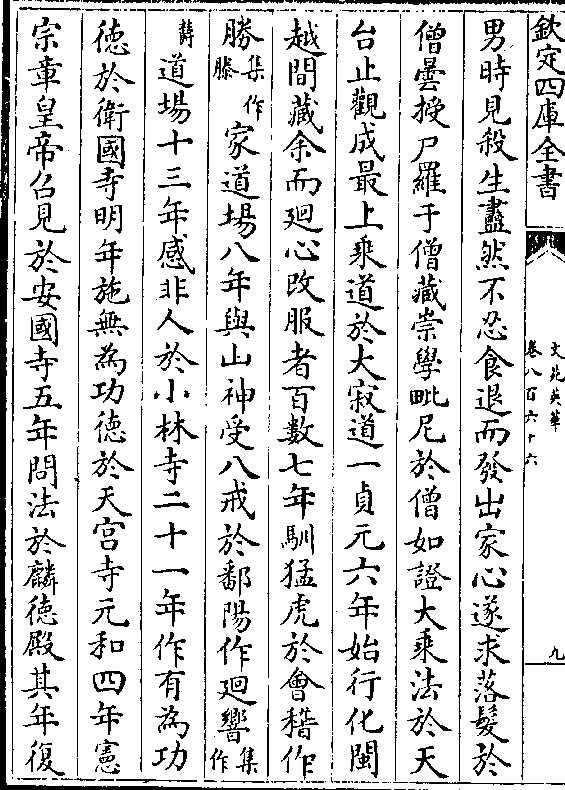 欽定四庫全書
文苑英華
卷八百六十六
九
男時見殺生盡然不忍食退而發出家心遂求落髮於
僧曇授尸羅于僧藏崇學毗尼於僧如證大乘法於天
台止觀成最上乘道於大寂道一貞元六年始行化閩
越間藏余而廻心改服者百數七年馴猛虎於會稽作
勝集作滕家道場八年與山神受八戒於鄱陽作廻響集作
薌道場十三年感非人於小林寺二十一年作有為功
徳於衛國寺明年施無為功徳於天宫寺元和四年憲
宗章皇帝召見於安國寺五年問法於麟徳殿其年復